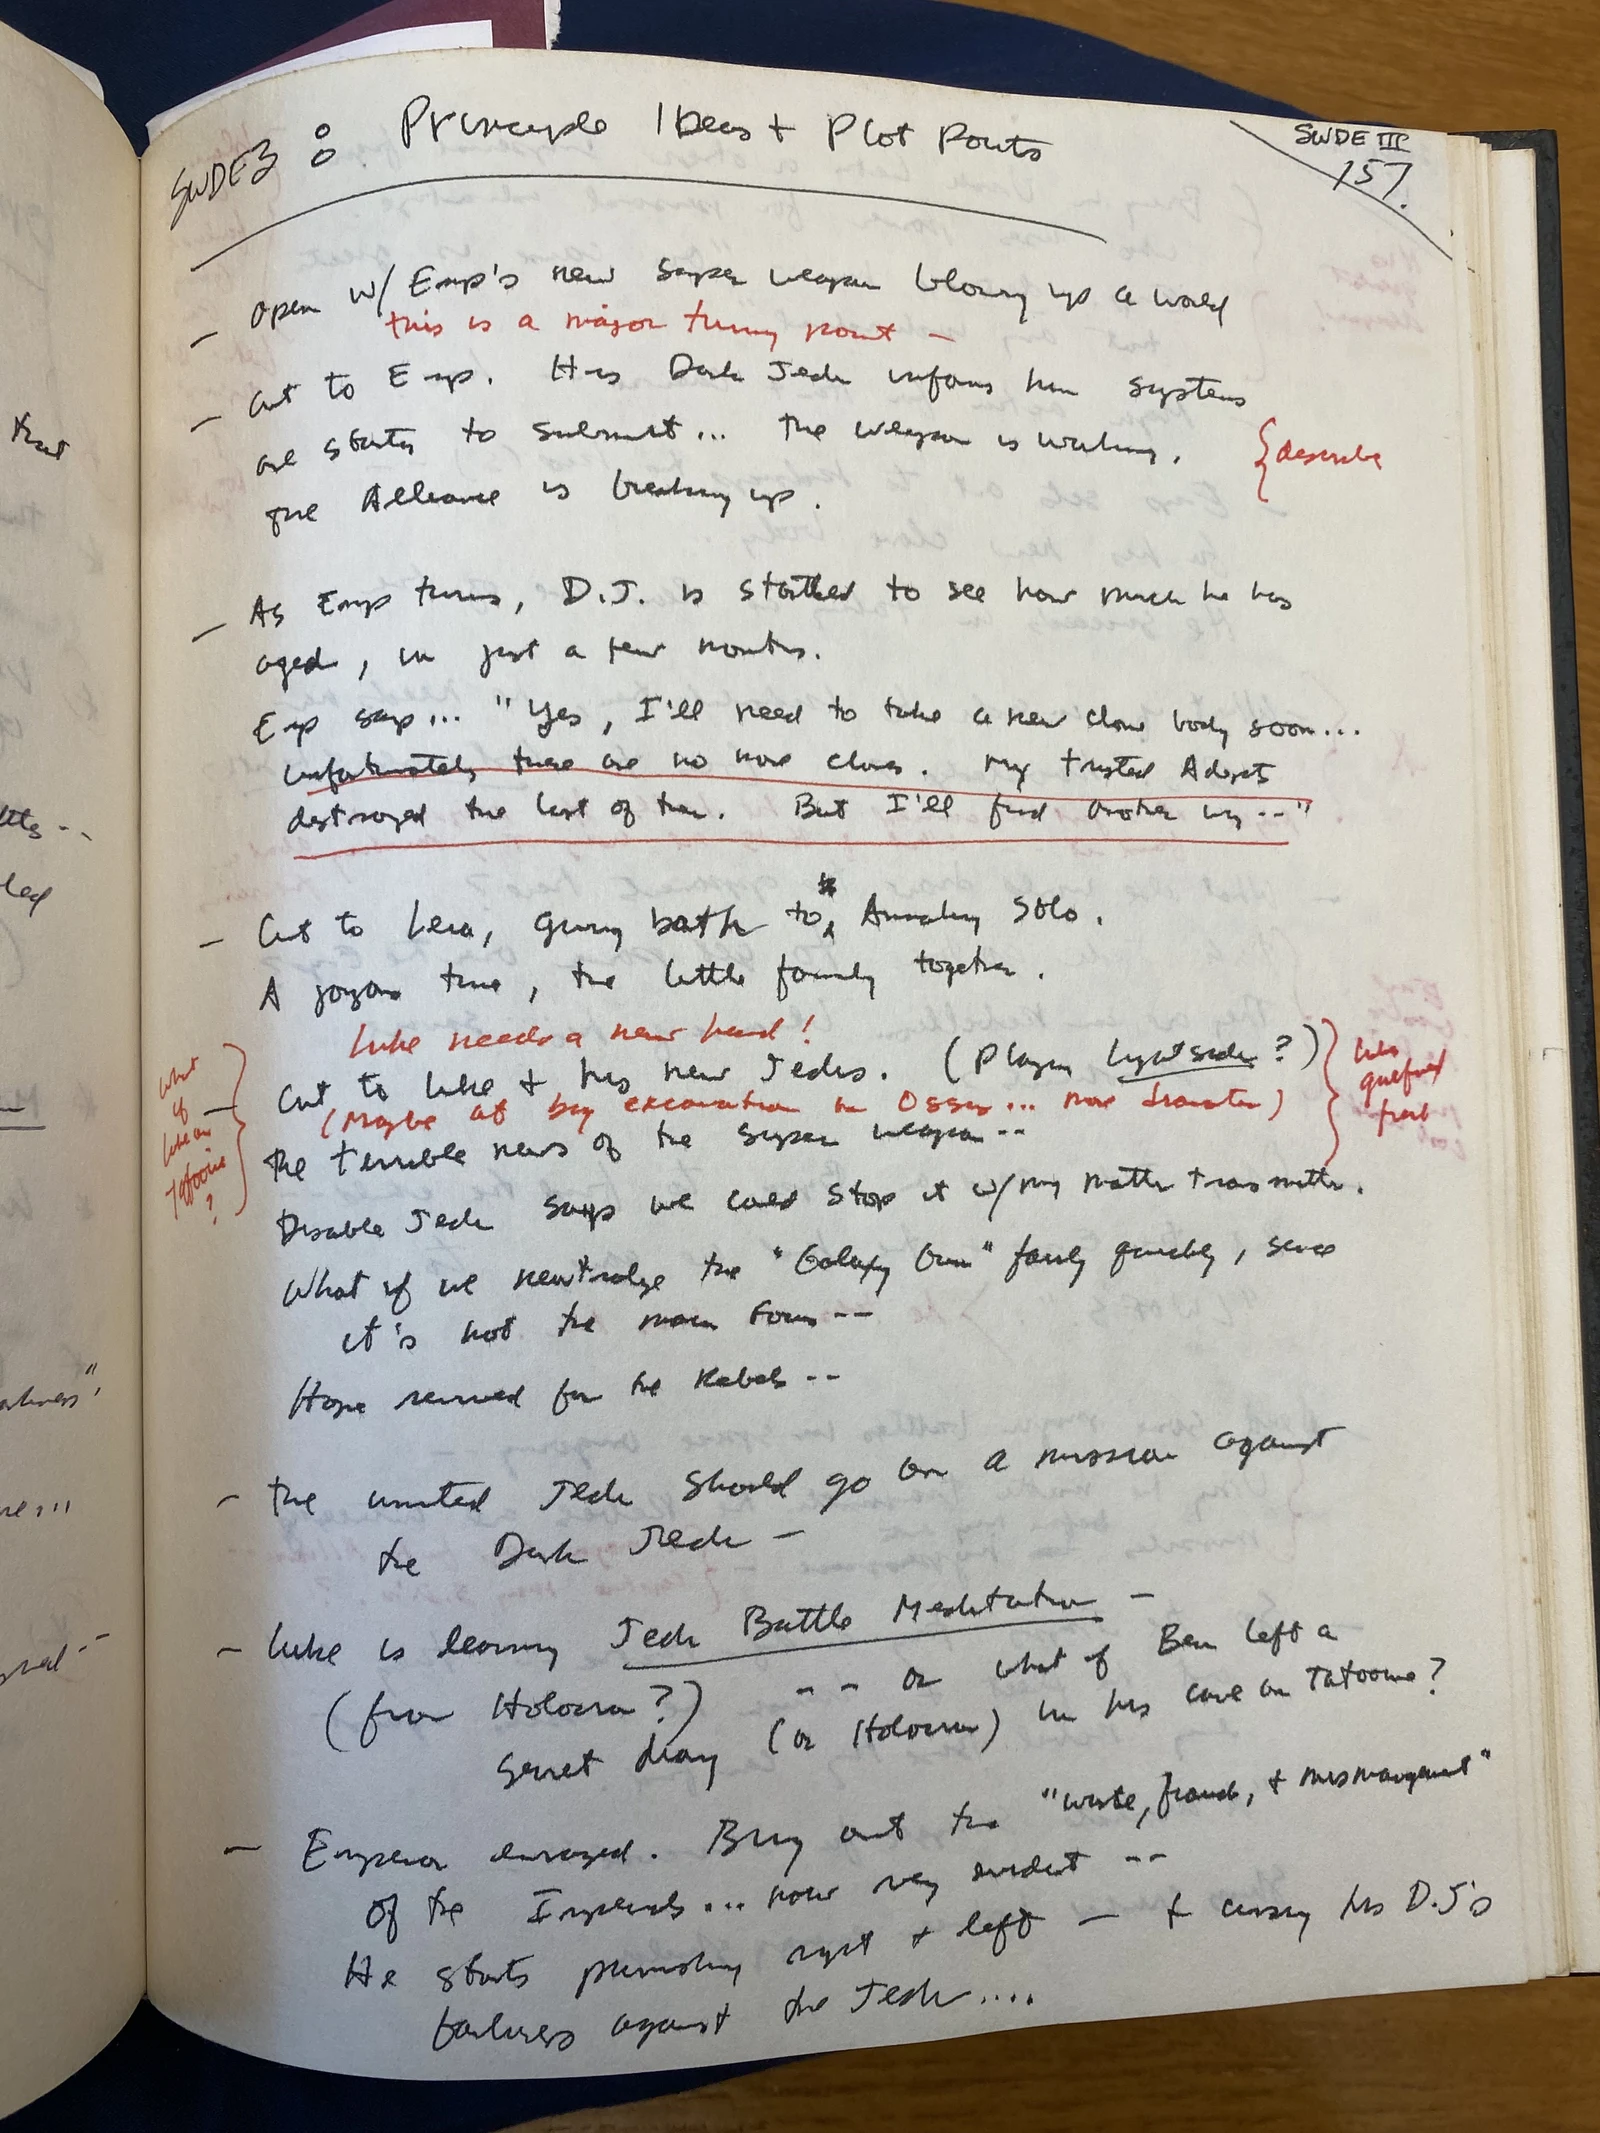 SWDE3 : Principle Ideas + Plot Points
SWDE III
157.
- Open w/ Emp's new super weapon blowing up a world
this is a major turning point -
- Cut to Emp. His Dark Jedi informs him systems
are starting to submit... The weapon is working.
{describe
The Alliance is breaking up.
- As Emp turns, D.J. is startled to see how much he has
aged, in just a few months.
Emp says... "Yes, I'll need to take a new clone body soon...
Unfortunately there are no more clones. My trusted Adepts
destroyed the last of them. But I'll find another way --"
- Cut to Leia, giving bath to Annakin Solo.
A joyous time, the little family together.
Luke needs a new hand!
- Cut to Luke + his new Jedis. (Playing Lightsabe?)
(Maybe at big excavation on Ossus... more dramatic)
what if Luke on Tatooine?
girlfriend
The terrible news of the super weapon --
Disable Jedi says we could stop it w/ my matter transmitter.
What if we neutralize the "Galaxy Gun" fairly quickly, since
it's not the main focus --
Hope renewed for the Rebels --
- The united Jedi should go on a mission against
the Dark Jedi -
- Luke is learning Jedi Battle Meditation -
(from Holocron?) -- or what if Ben left a
secret diary (or Holocron) in his cave on Tatooine?
- Emperor enraged. Bring out the "waste, fraud, + mismanagement"
of the Imperials... now very evident --
He starts punishing right + left - + cursing his D.J.'s
failures against the Jedi....
that